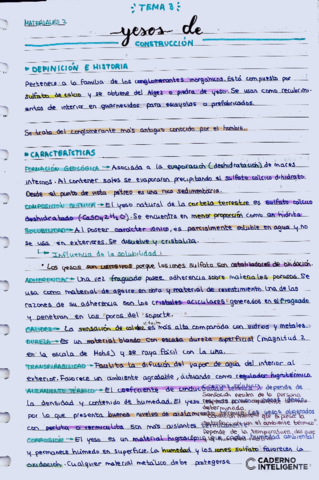 TEMA 3
MATERIALES 2
yesos de
CONSTRUCCIÓN
DEFINICIÓN E HISTORIA
Pertenece a la familia de los conglomerantes inorgánicos. Está compuesto por
sulfato de calcio y se obtiene del Algez o piedra de yeso. Se usa como recubrimi-
entos de interior en guarnecidos para escayolas o prefabricados.
Se trata del conglomerante más antiguo conocido por el hombre.
CARACTERÍSTICAS
FORMACIÓN GEOLÓGICA → Asociada a la evaporación (deshidratación) de mares
internos. Al contener sales se evaporaron precipitando el sulfato cálcico dihidrato.
Desde el punto de vista pétreo es una roca sedimentaria.
COMPOSICIÓN QUÍMICA → El yeso natural de la corteza terrestre es sulfato cálcico
deshidratado (CaSO4 2H2O). Se encuentra en menor proporción como anhidrita.
SOLUBILIDAD → Al poseer carácter iónico, es parcialmente soluble en agua y no
se usa en exteriores. Se disuelve y cristaliza.
Influencia de la solubilidad:
Los yesos son corrosivos porque los iones sulfato son catalizadores de oxidación.
ADHERENCIA → Una vez fraguado posee adherencia sobre materiales porosos. Se
usa como material de agarre en obra y material de revestimiento. Una de las
razones de su adherencia son los cristales aciculares generados en el fraguado
y penetran en los poros del soporte.
CALIDEZ → La sensación de calidez es más alta comparada con vidrios y metales.
DUREZA → Es un material blando con escasa dureza superficial (magnitud 2
en la escala de Mohs) y se raya fácil con la uña.
TRANSPIRABILIDAD → Facilita la difusión del vapor de agua del interior al
exterior. Favorece un ambiente agradable y actuando como regulador higrotérmico.
AISLAMIENTO TÉRMICO → El coeficiente de conductividad térmica depende de
la densidad y contenido de humedad. El yeso
por lo que presenta buenos niveles de aislamiento térmico. Los yesos aligerados
con perlita o vermiculita son más aislantes
CORROSIÓN → El yeso es un material higroscópico que capta humedad ambiental
y permanece húmedo en superficie. La humedad y los iones sulfato favorecen la
oxidación. Cualquier material metálico debe protegerse.
CADERNO
INTELIGENTE